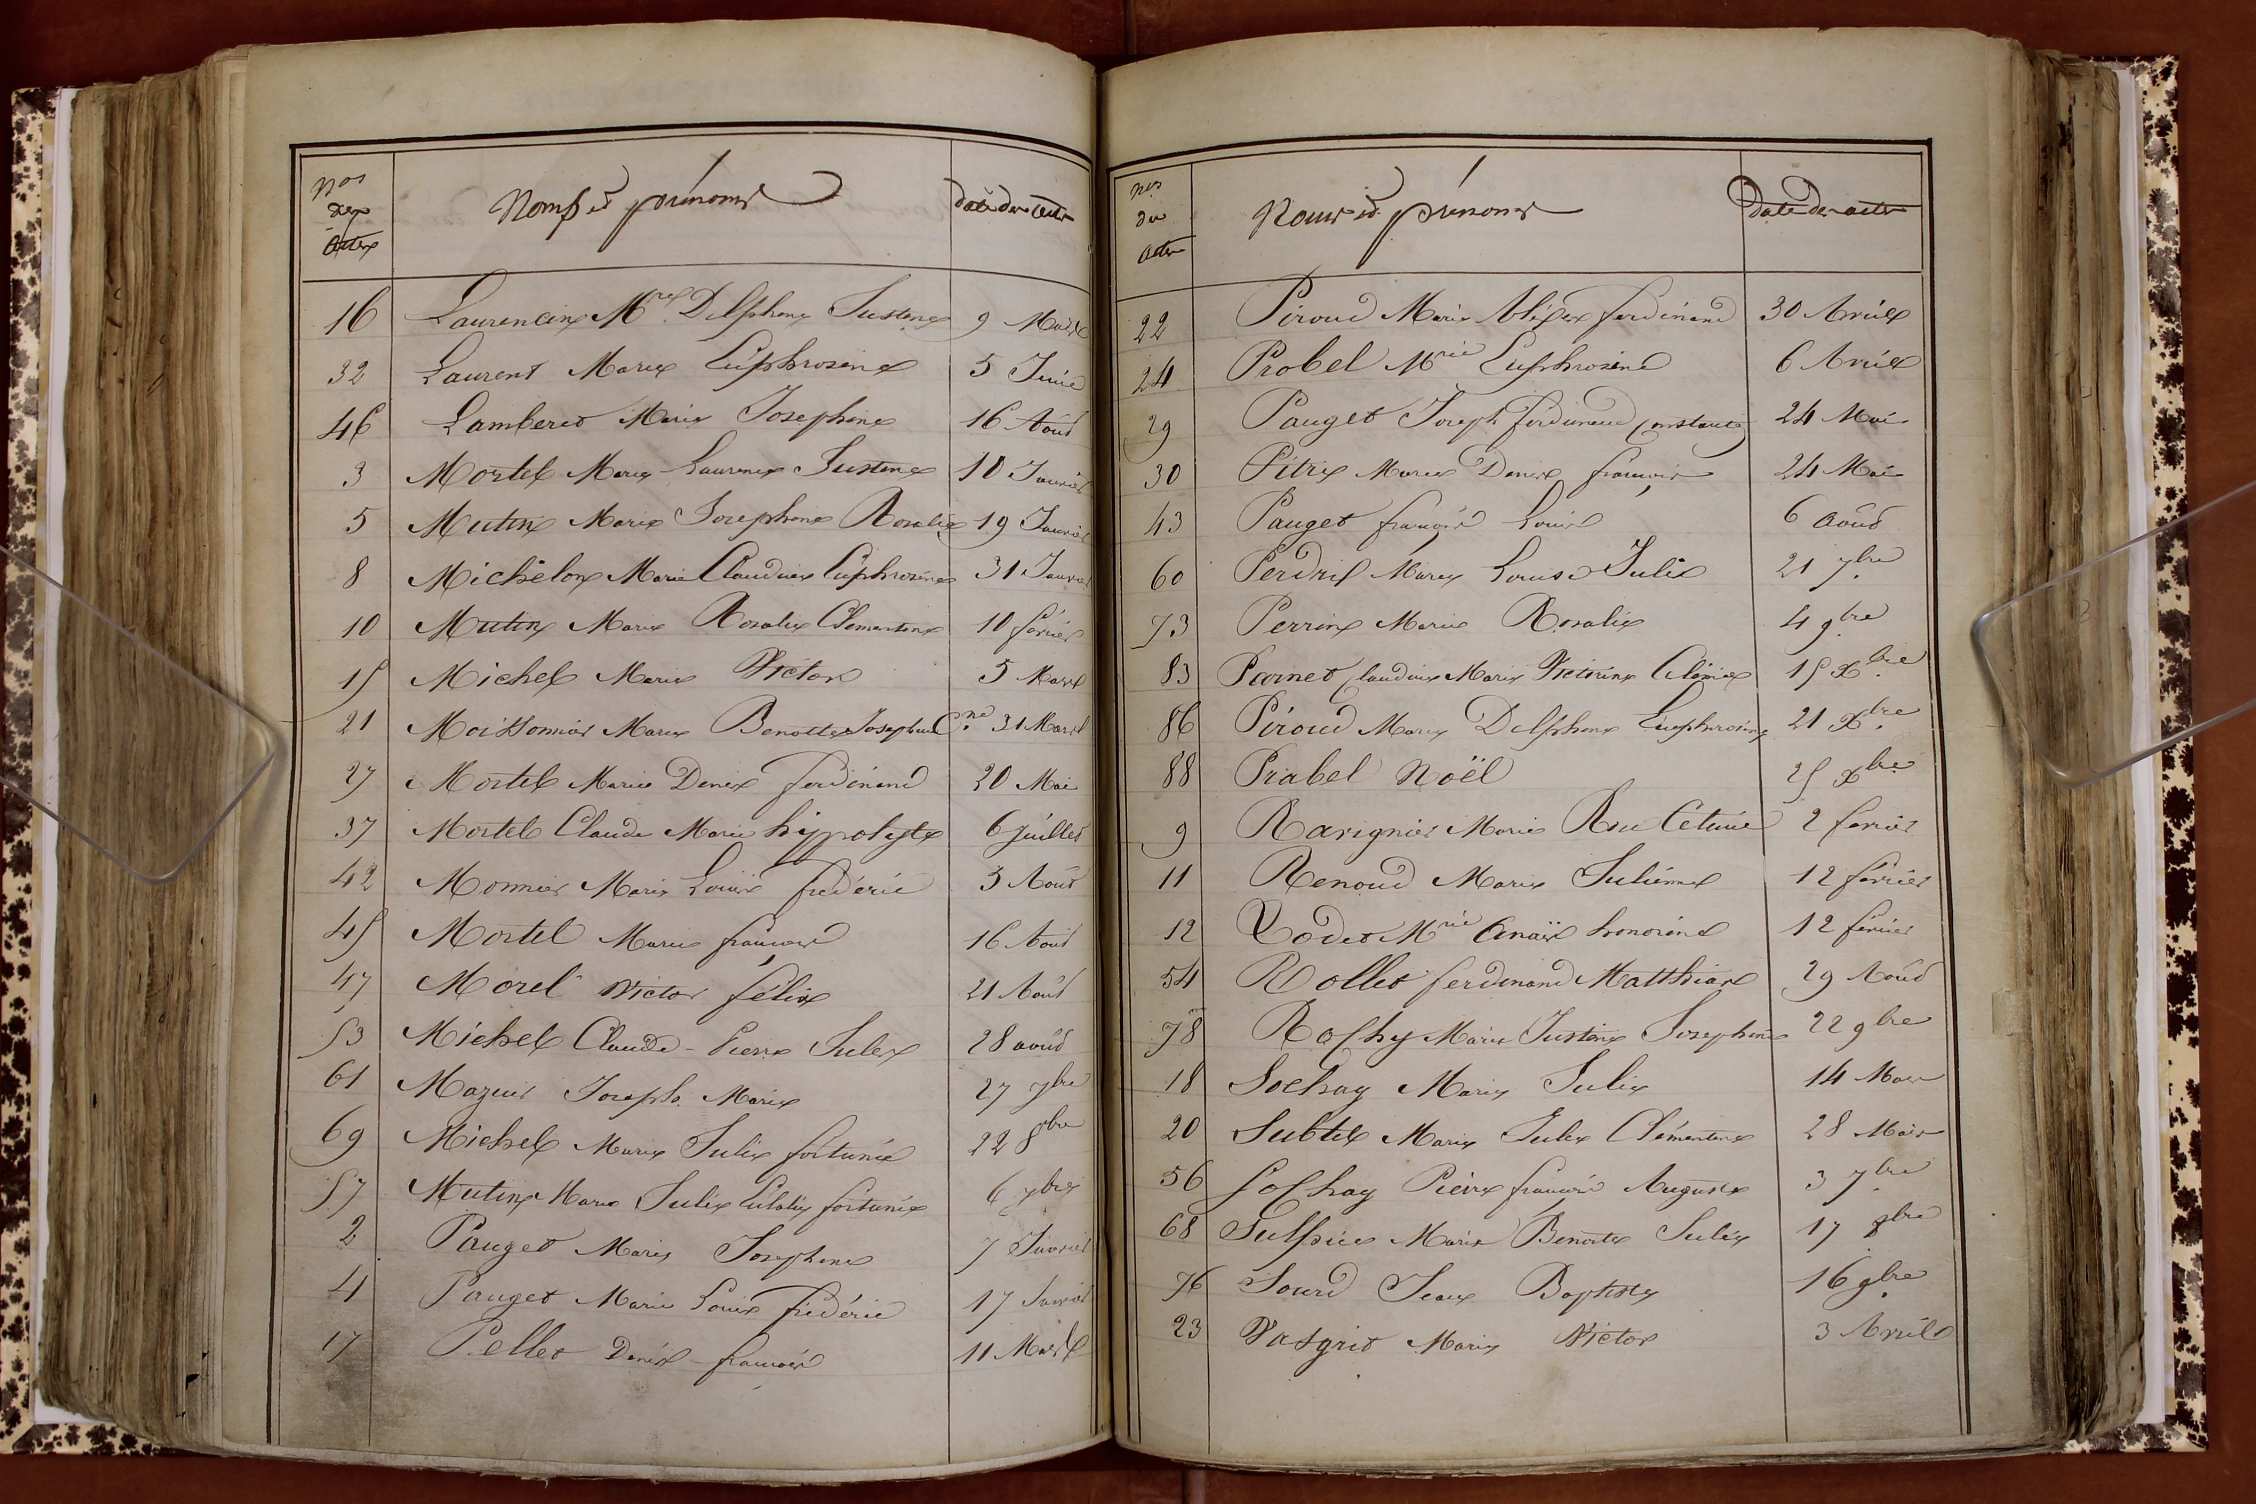 Nos des Actes Noms et prénoms date des actes
16 Laurencin Mrie Delphine Justine 9 Mars
32 Laurent Marie Euphrosine 5 Juin
46 Lamberet Marie Josephine 16 Août
3 Mortel Marie Laurence Justine 10 Janvier
5 Mutin Marie Josephine Rosalie 19 Janvier
8 Michelon Marie Claudine Euphrosine 31 Janvier
10 Mutin Marie Rosalie Clementine 10 février
15 Michel Marie Victor 5 Mars
21 Moissonnier Marie Benotte Josephine Cne 31 Mars
27 Mortel Marie Denis ferdinand 20 Mai
37 Mortel Claude Marie hippolyte 6 juillet
42 Monnier Marie Louis frédéric 3 Août
45 Mortel Marie françois 16 Août
47 Morel Victor félix 21 Août
53 Michel Claude-Pierre Jules 28 août
61 Mazuir Joseph Marie 27 7bre
69 Michel Marie Julie fortunée 22 8bre
57 Mutin Marie Julie Eulalie fortunée 6 7bre
2 Pauget Marie Josephine 7 Janvier
4 Pauget Marie Louis frédéric 17 Janvier
17 Pellet Denis-françois 11 Mars
Nos des actes Noms et prénoms date des actes
22 Piroud Marie Alexis ferdinand 30 Avril
24 Probel Mrie Euphrosine 6 Avril
29 Pauget Joseph ferdinand Constant 24 Mai
30 Pitre Marie Denis françois 24 Mai
43 Pauget françois Louis 6 août
60 Perdrix Marie Louise Julie 21 7bre
73 Perrin Marie Rosalie 4 9bre
83 Claudine Marie Victorine 15 Xbre
86 Piroud Marie Delphine Euphrosine 21 Xbre
88 Prabel Noël 25 Xbre
9 Ravignier Marie 2 fevrier
11 Renoud Marie Julienne 12 février
12 Rodet Mrie Anaïs honorine 12 février
54 Rollet ferdinand Matthias 29 Août
78 Marie Justine Josephine 22 9bre
18 Sochay Marie Julie 14 Mars
20 Subtil Marie Julie Clémentine 28 Mars
56 Sochay Pierre françois Auguste 3 7bre
68 Sulpice Marie Benoite Julie 17 8bre
76 Sourd Jean Baptiste 16 9bre
23 Vasgrit Marie Victor 3 Avril